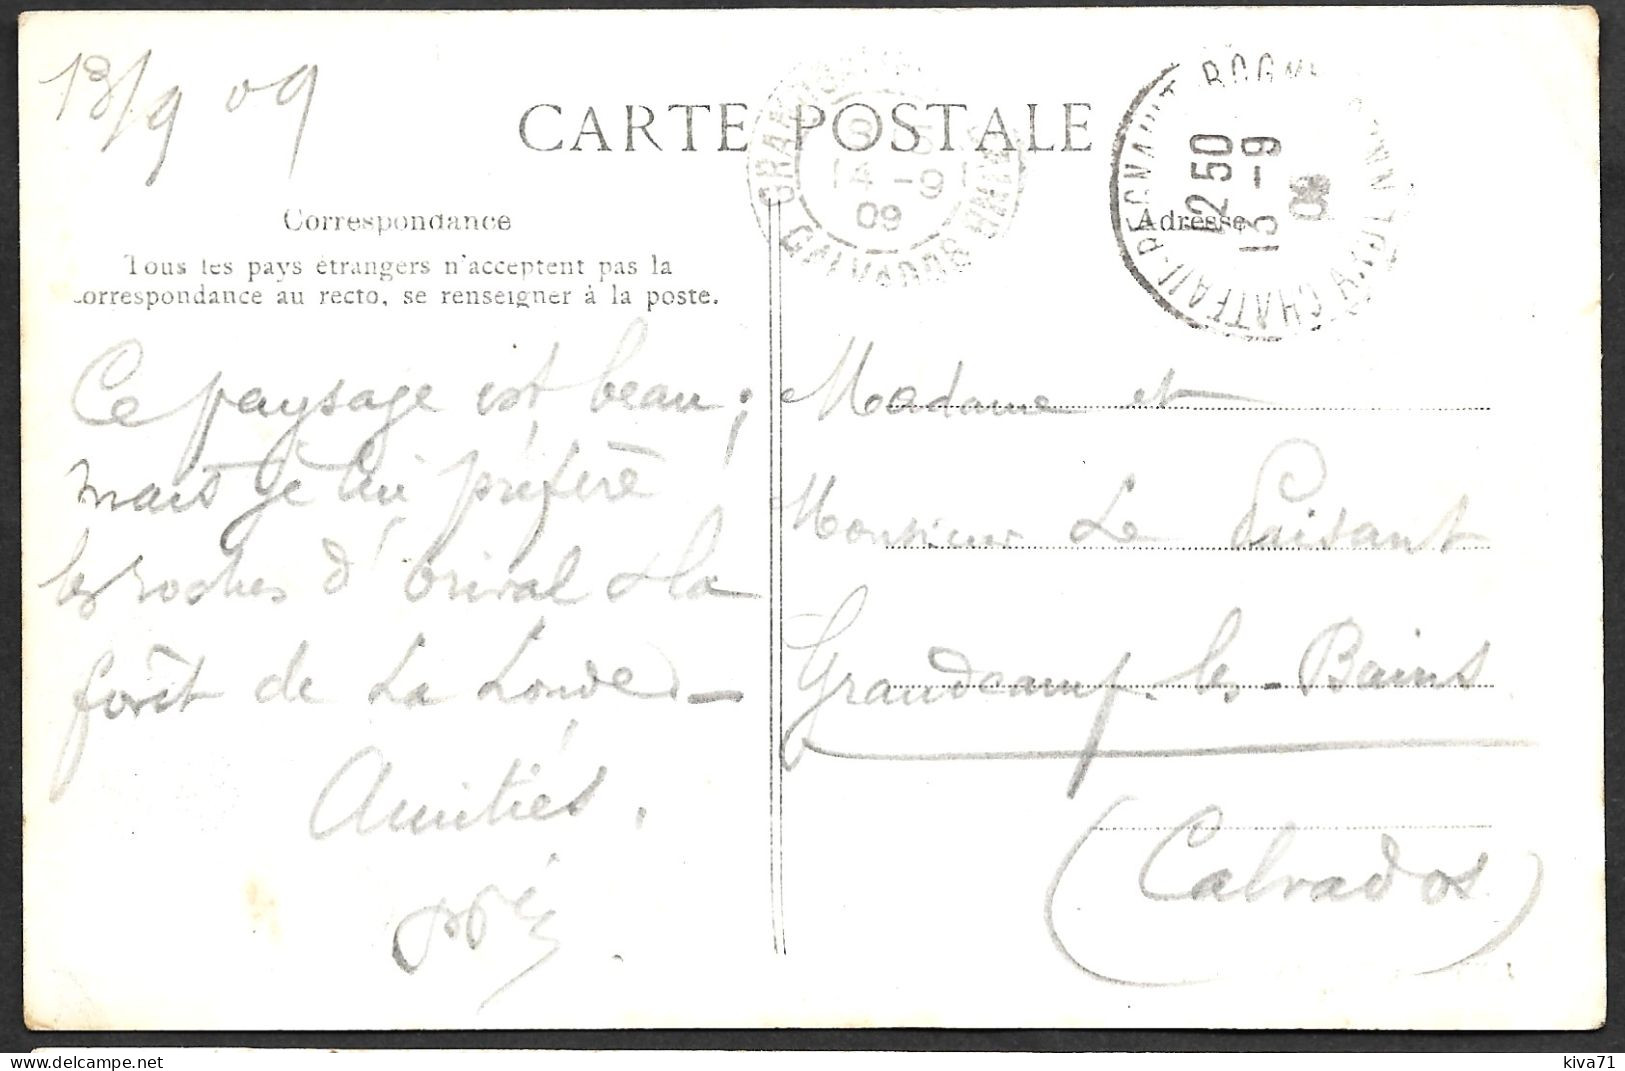 13/9 09
CARTE POSTALE
Correspondance
Tous les pays étrangers n'acceptent pas la
correspondance au recto, se renseigner à la poste.
Ce paysage est beau;
mais je lui préfère
les roches d'Orival & la
forêt de La Londe –
Amitiés.
14 -9
09
CALVADOS
12 50
13 -9
09
Adresse
Madame et
Monsieur Le Paisant
Grandcamp-les-Bains
(Calvados)
delcampe.net
kiva71